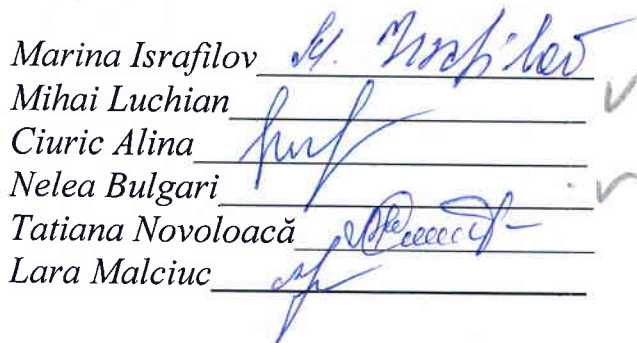 Marina Israfilov M. Israfilov
Mihai Luchian
Ciuric Alina
Nelea Bulgari
Tatiana Novoloacă
Lara Malciuc